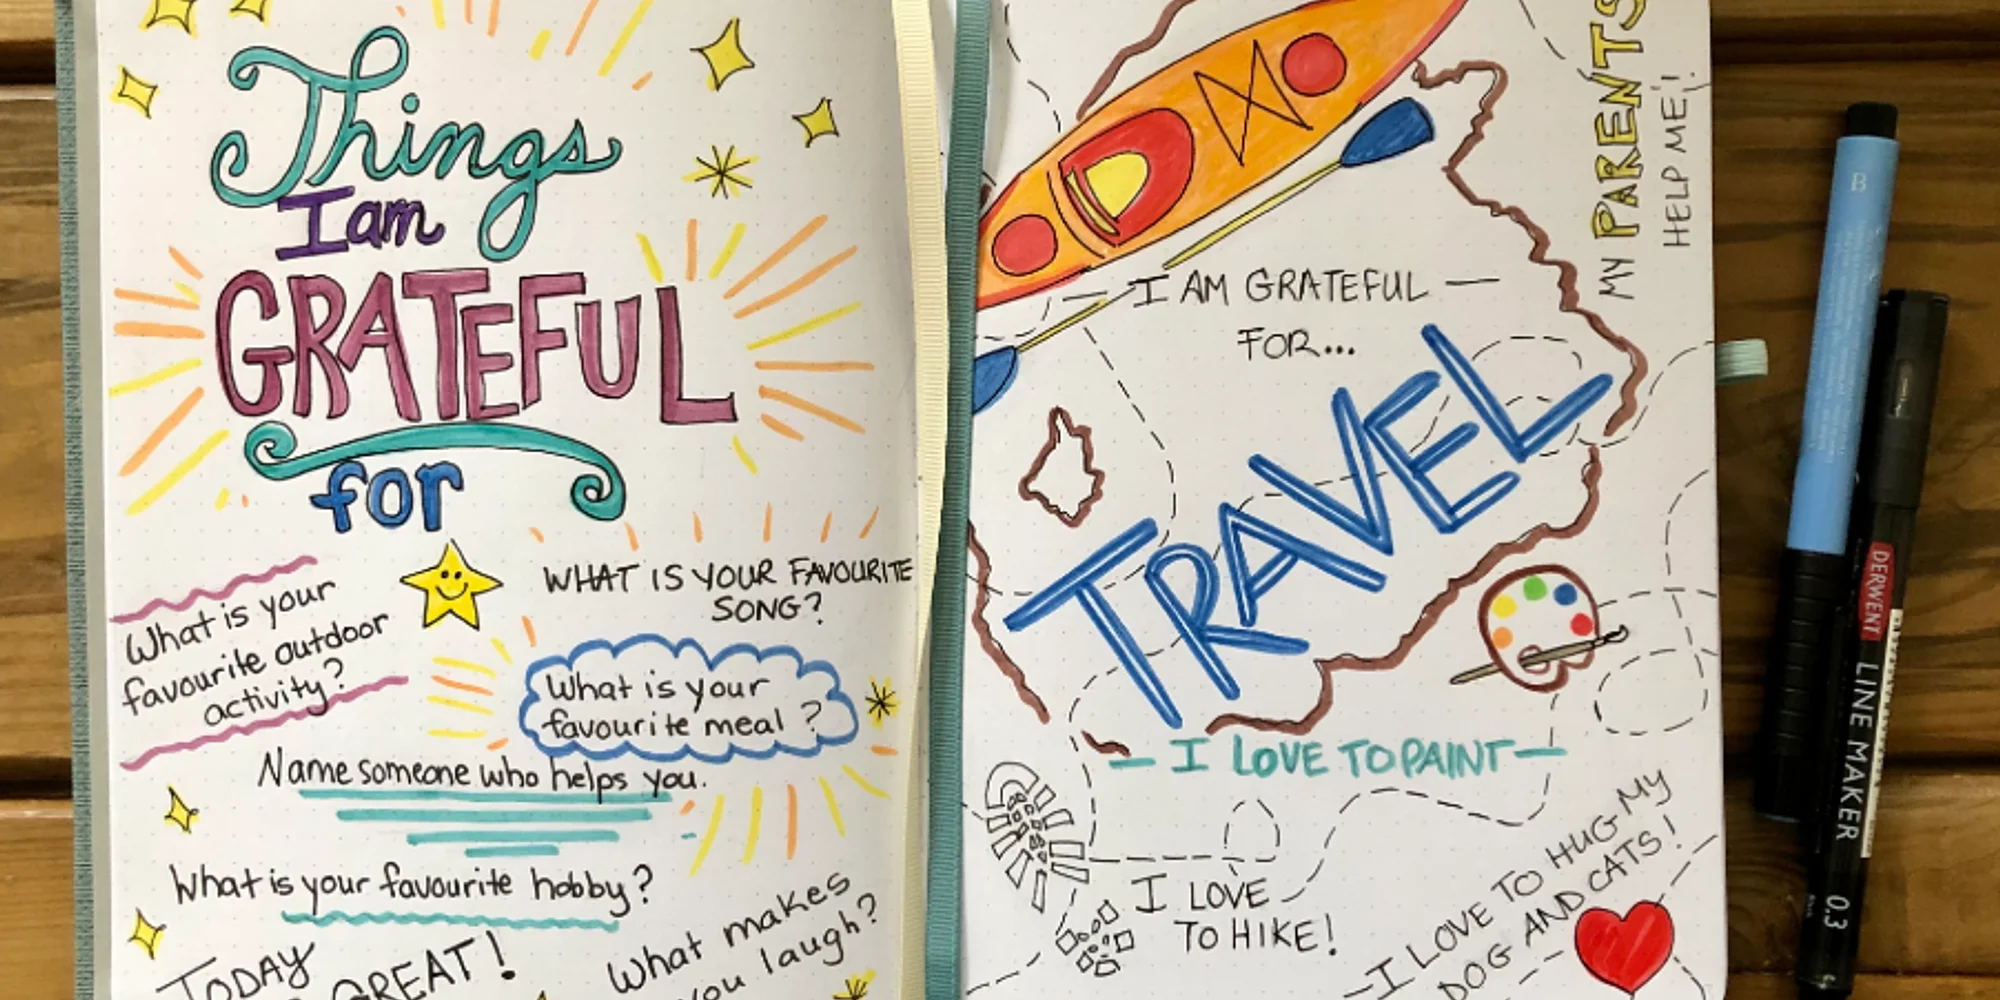 Things
I am
GRATEFUL
for
What is your
favourite outdoor
activity?
WHAT IS YOUR FAVOURITE
SONG?
What is your
favourite meal?
Name someone who helps you.
What is your favourite hobby?
TODAY
GREAT!
What makes
you laugh?
MY PARENTS
HELP ME!
I AM GRATEFUL
FOR...
TRAVEL
I LOVE TO PAINT
I LOVE
TO HIKE!
I LOVE TO HUG MY
DOG AND CATS!
B
DERWENT
LINE MAKER
0.3